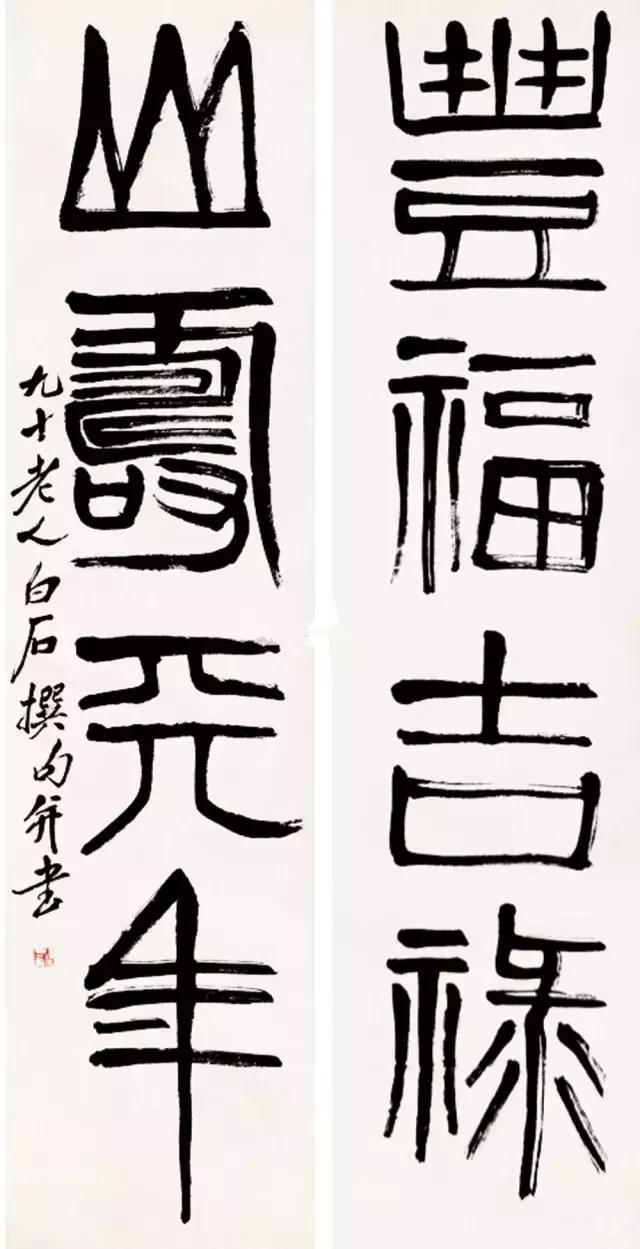 豐福吉祿
山壽天年
九十老人白石撰句并書